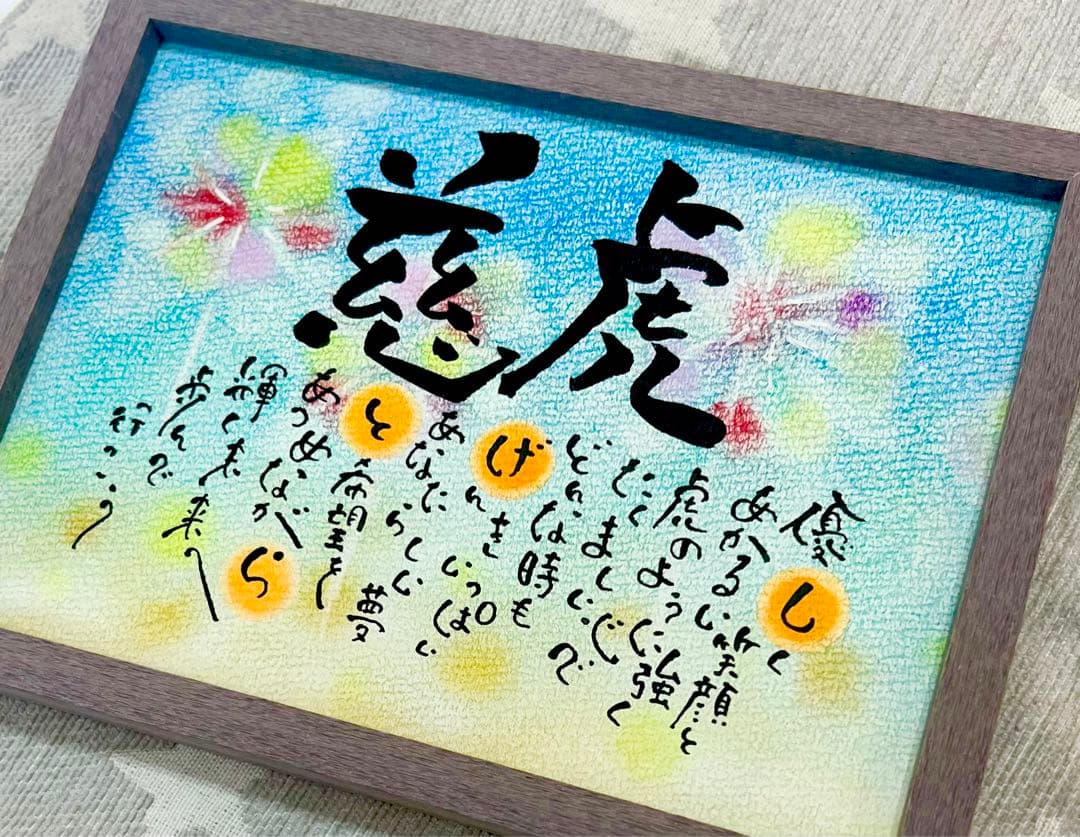 慈虎
優しく
あかるい笑顔と
虎のように強く
たくましい心で
どんな時も
げんきいっぱい
あなたらしい
と希望と夢
あつめながら
輝く未来へ
歩んで
行こう